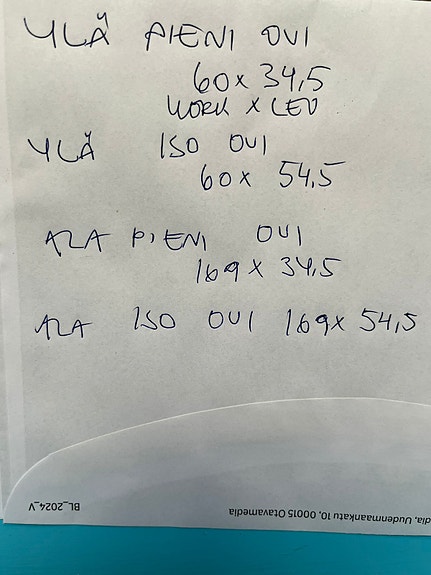 YLÄ PIENI OVI
60x 34,5
KORK X LEV
YLÄ ISO OVI
60x 54,5
ALA PIENI OVI
169x 34,5
ALA ISO OVI 169x 54,5
dia, Uudenmaankatu 10, 00015 Otavamedia
BL_2024_V